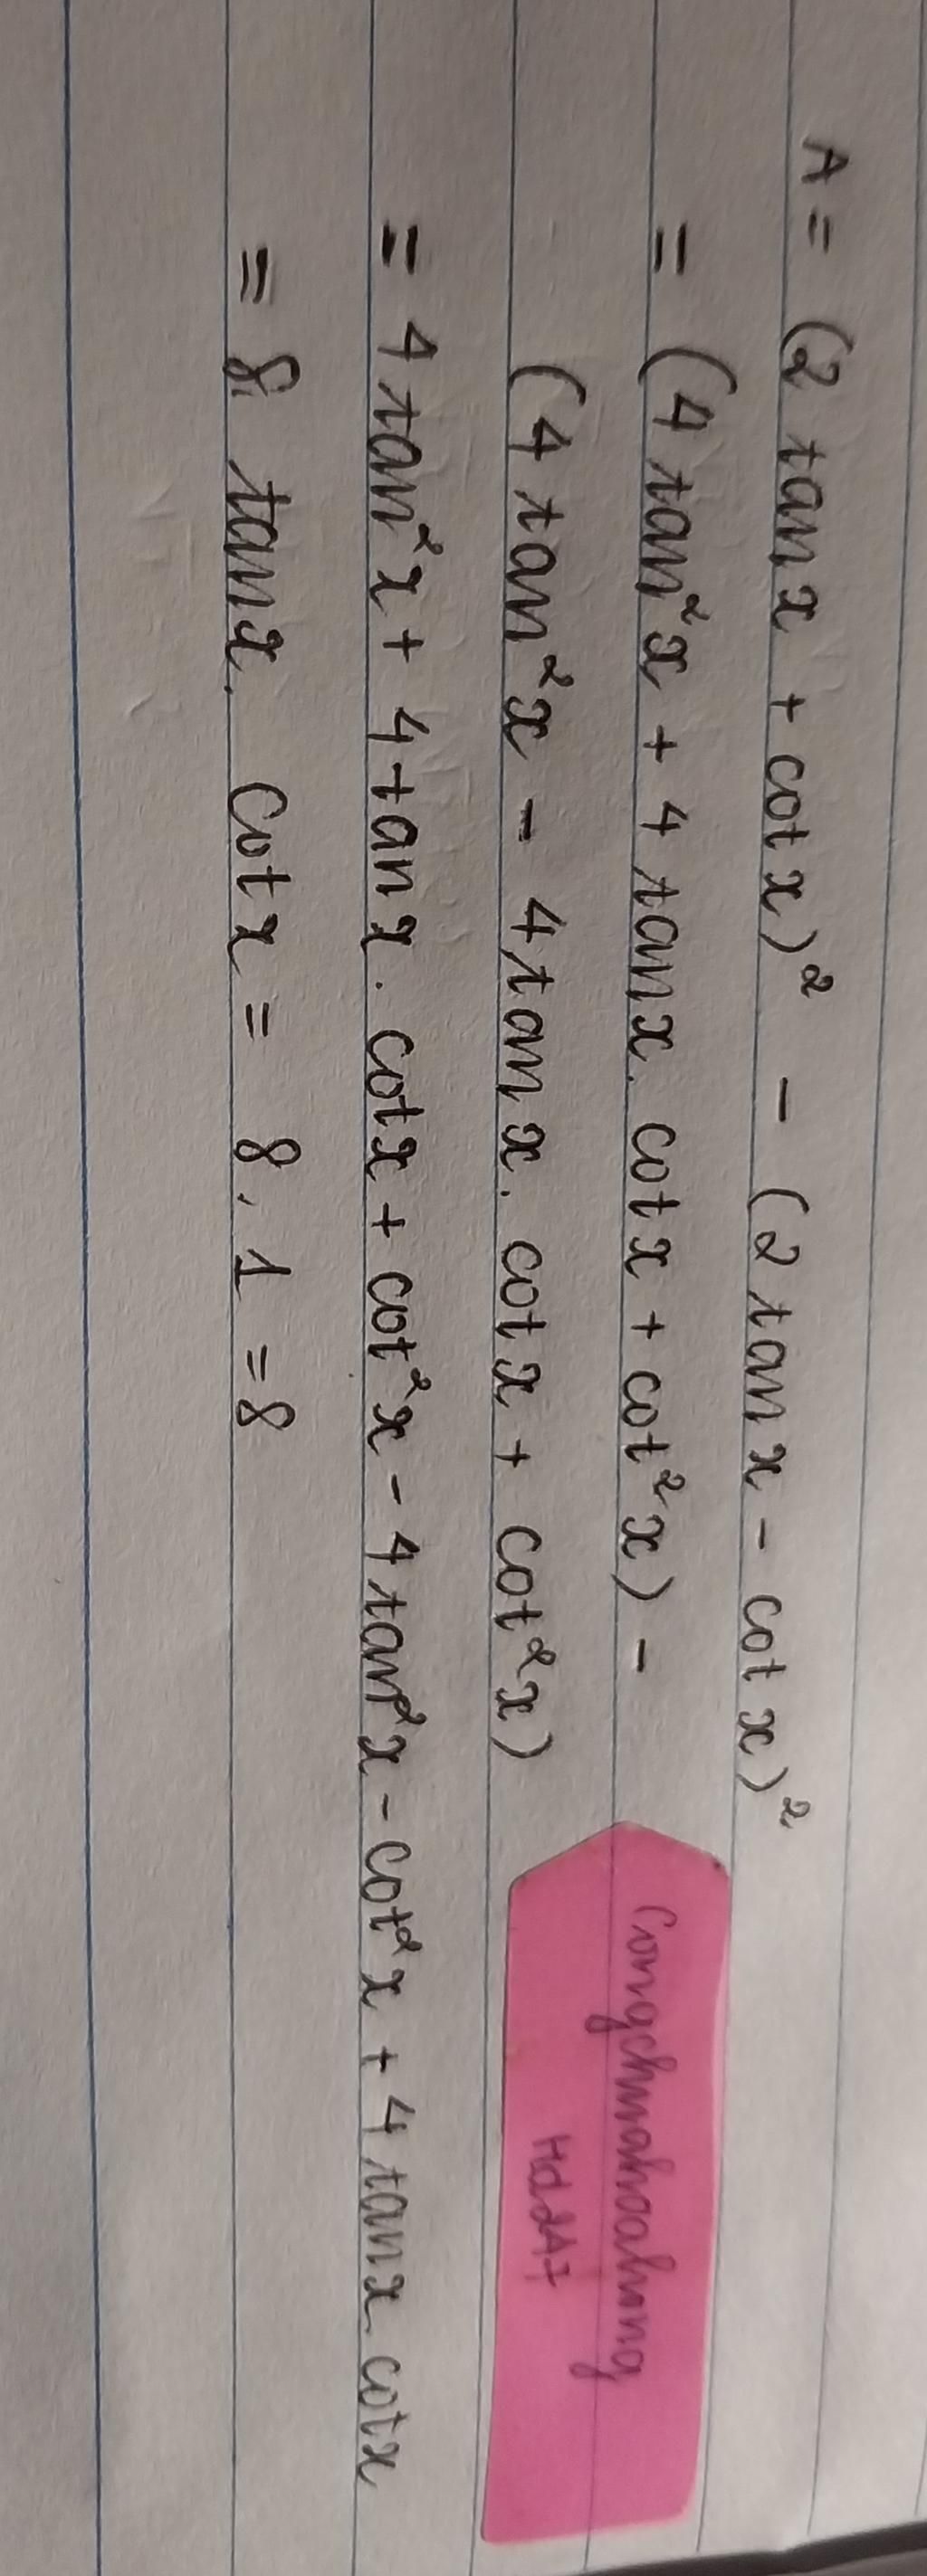 A = (2 tan x + cot x)² - (2 tan x - cot x)²
= (4 tan² x + 4 tan x . cot x + cot² x) -
(4 tan² x - 4 tan x . cot x + cot² x)
= 4 tan² x + 4 tan x . cot x + cot² x - 4 tan² x - cot² x + 4 tan x . cot x
= 8 . tan x . cot x = 8 . 1 = 8
Congchuahoahong
Hd2A7